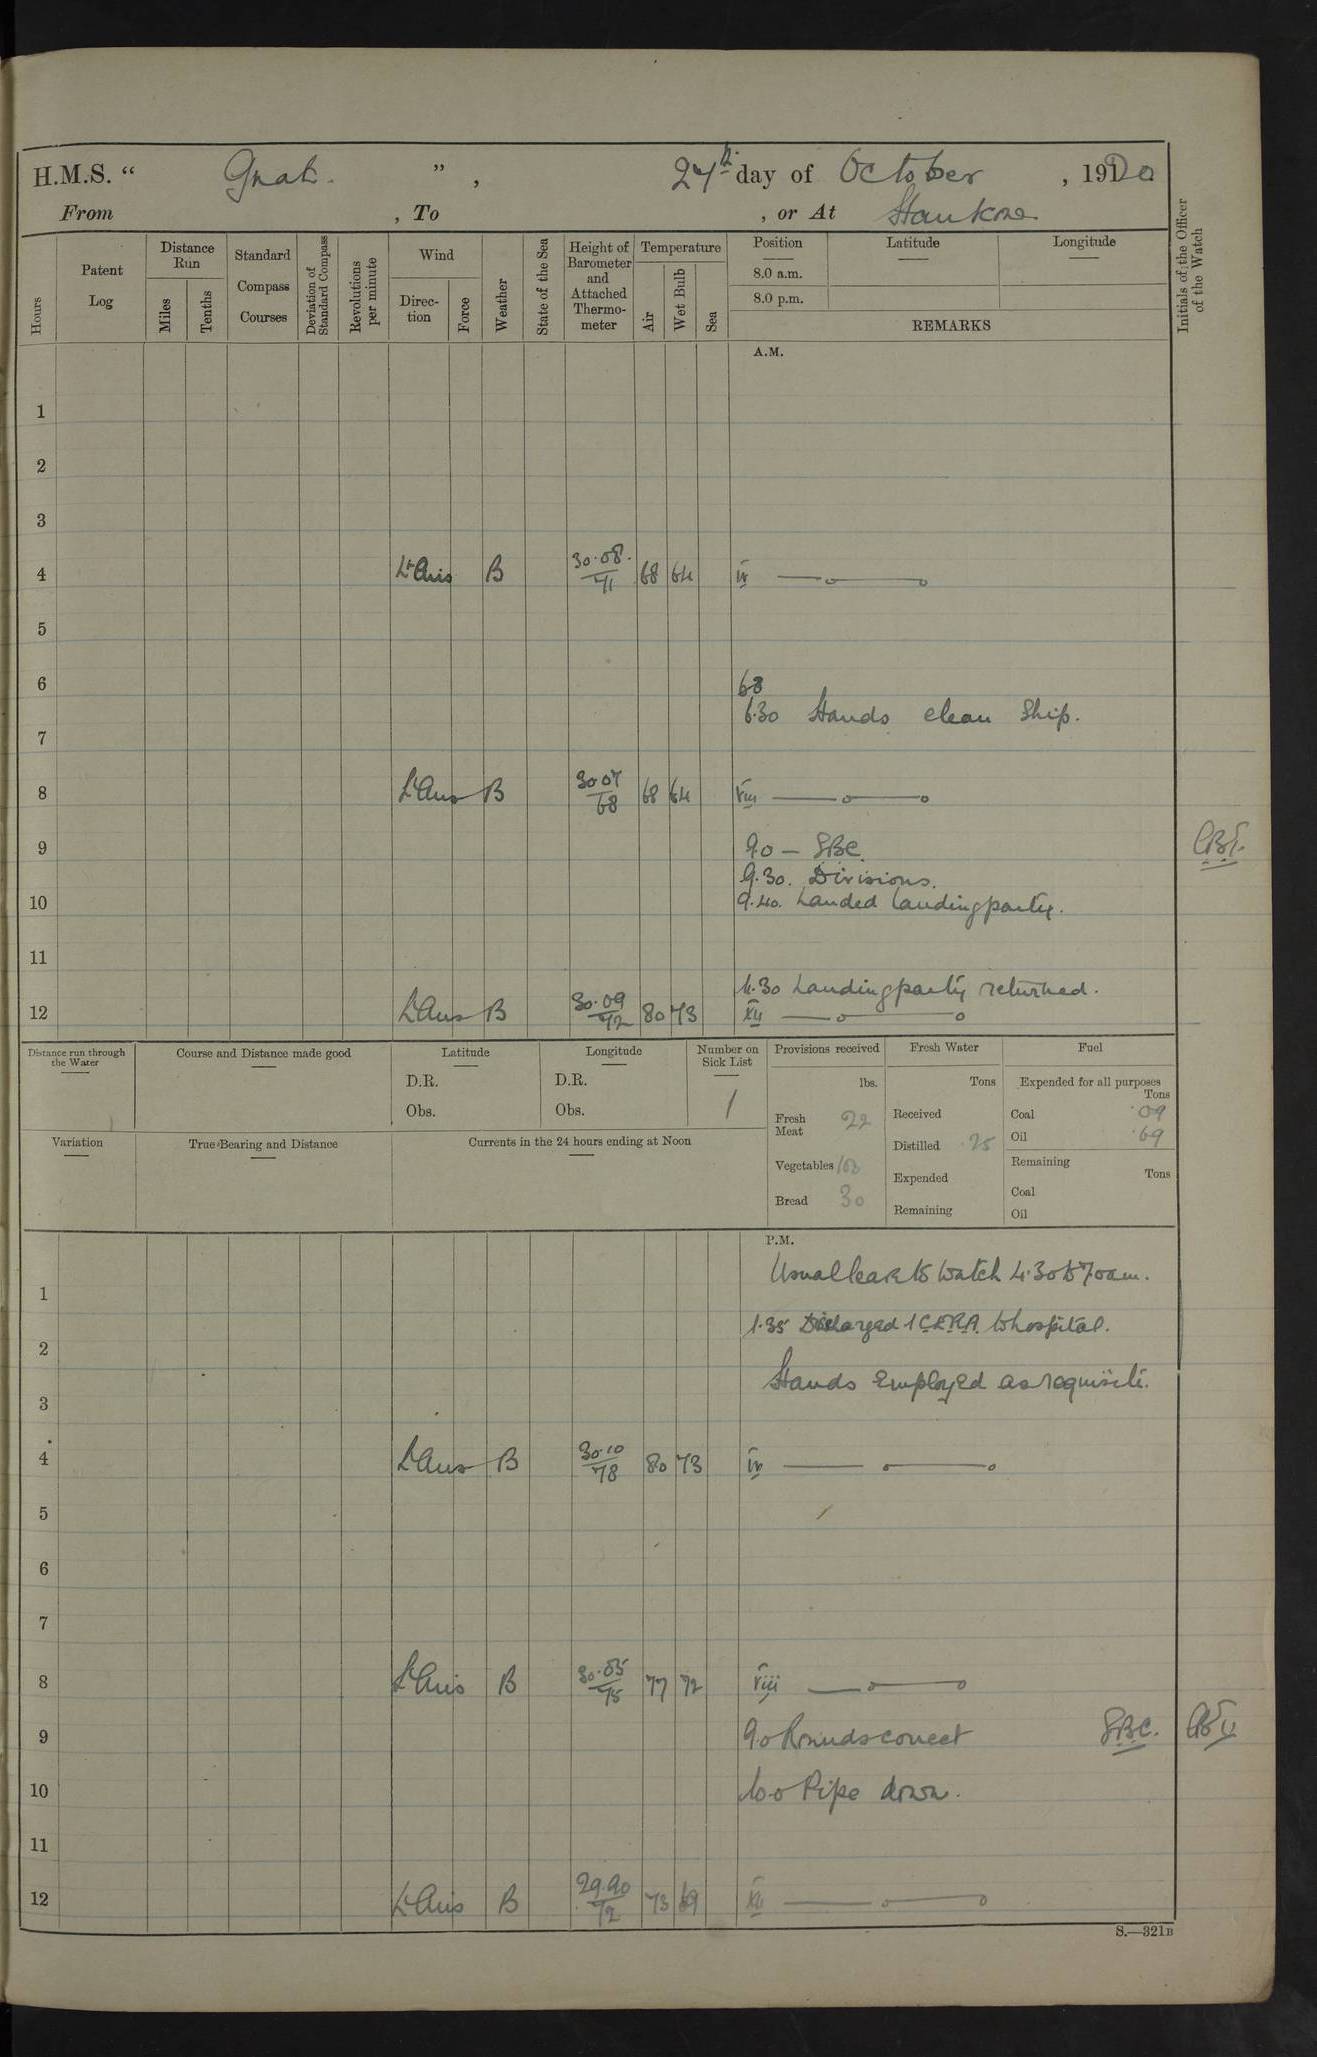 H.M.S. “ Gnat. ” , 24th day of October , 1920
From , To , or At Hankow
Hours
Patent Log
Distance Run
Miles
Tenths
Standard Compass Courses
Deviation of Standard Compass
Revolutions per minute
Wind
Direc-tion
Force
Weather
State of the Sea
Height of Barometer and Attached Thermo-meter
Temperature
Air
Wet Bulb
Sea
Position
Latitude
Longitude
8.0 a.m.
8.0 p.m.
REMARKS
Initials of the Officer of the Watch
A.M.
1
2
3
4 Lt Airs B 30.08 71 68 64 iv
5
6
6.30 Hands clean Ship.
7
8 Lt Airs B 30 07 68 68 64 viii
9 9.0 — SBC
9.30. Divisions.
10 9.40. Landed landing party.
11
11.30 Landing party returned.
12 Lt Airs B 30.09 72 80 73 xii
Distance run through the Water
Course and Distance made good
Latitude
D.R.
Obs.
Longitude
D.R.
Obs.
Number on Sick List
1
Provisions received
lbs.
Fresh Meat 22
Vegetables
Bread 30
Fresh Water
Tons
Received
Distilled .25
Expended
Remaining
Fuel
Expended for all purposes
Tons
Coal .09
Oil .69
Remaining
Tons
Coal
Oil
Variation
True Bearing and Distance
Currents in the 24 hours ending at Noon
P.M.
Usual leave to watch 4.30 to 7.0 am.
1
1.35 Discharged 1 C.E.R.A. to hospital.
2
Hands employed as requisite.
3
4 Lt Airs B 30.10 78 80 73 iv
5
6
7
8 Lt Airs B 30.05 75 77 72 viii
9 9.0 Rounds correct SBC.
10 10.0 Pipe down.
11
12 Lt Airs B 29.90 72 73 69 xii
S.—321B